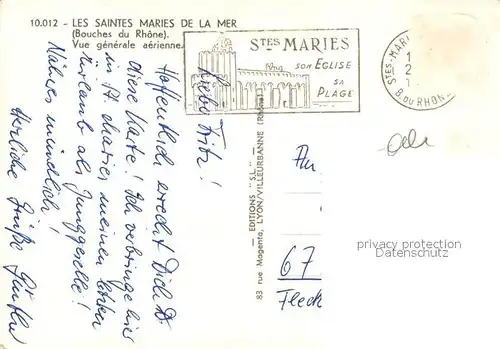 10.012 - LES SAINTES MARIES DE LA MER
(Bouches du Rhône).
Vue générale aérienne.
STES MARIES
SON EGLISE
SA
PLAGE
STES-MAR
1
2
1
B.DU RHON
Lieber Fritz!
Hoffentlich erreicht Dich
diese Karte! Ich verbringe hier
in St. Maries meinen letzten
Urlaub als Junggeselle!
Näheres mündlich!
Herzliche Grüße Günther
— EDITIONS "S.L." —
83 rue Magenta, LYON/VILLEURBANNE (Rhône)
An
67
Fleck
privacy protection
Datenschutz